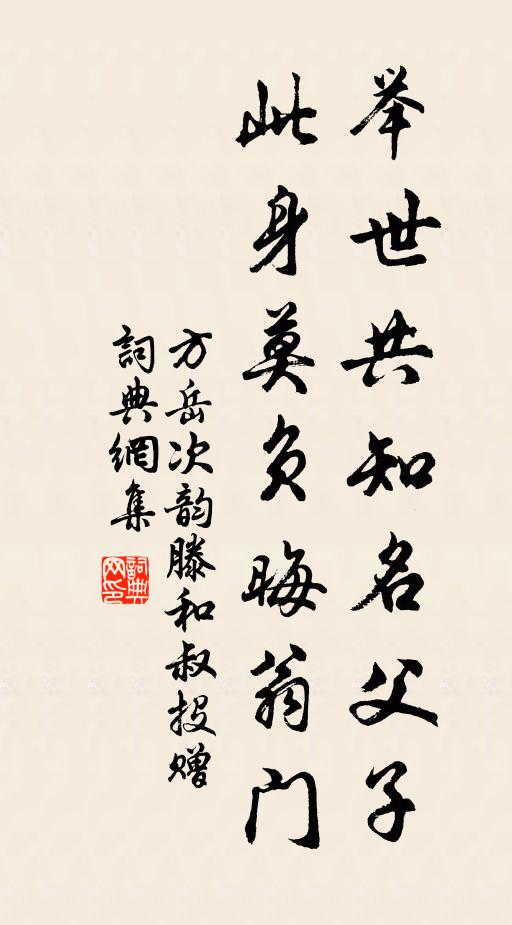 举世共知名父子
此身莫负晦翁门
方岳次韵滕和叔投赠
詞典網集
詞典网印